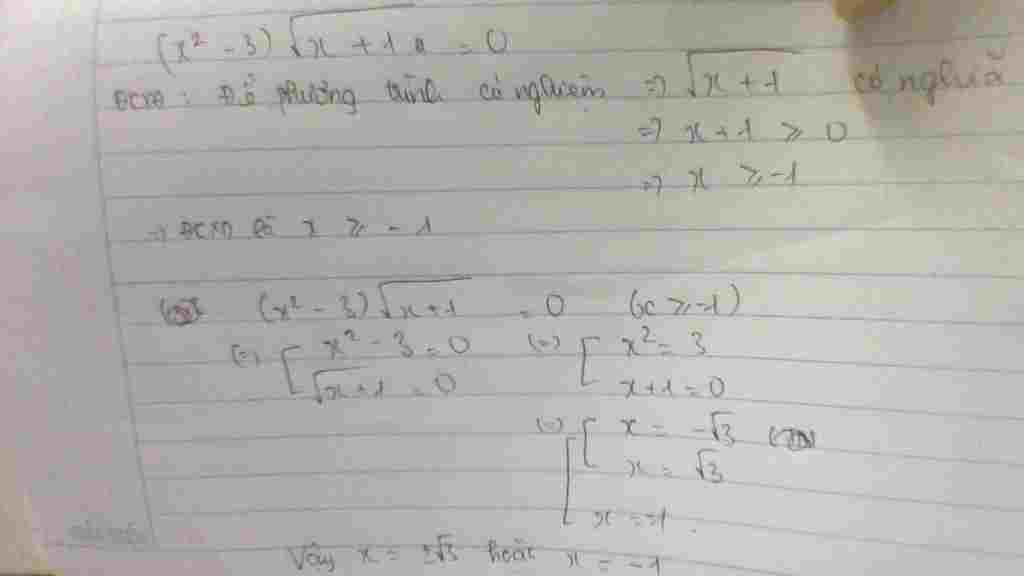 (x² - 3) √x + 1 = 0
ĐCXĐ: Để phương trình có nghiệm => √x + 1 có nghĩa
=> x + 1 ≥ 0
=> x ≥ -1
=> ĐCXĐ là x ≥ -1
(x² - 3) √x+1 = 0 (x ≥ -1)
(=) [ x² - 3 = 0 (=) [ x² = 3
√x+1 = 0 x+1 = 0
(=) [ [ x = -√3
x = √3
x = -1
Vậy x = ±√3 hoặc x = -1